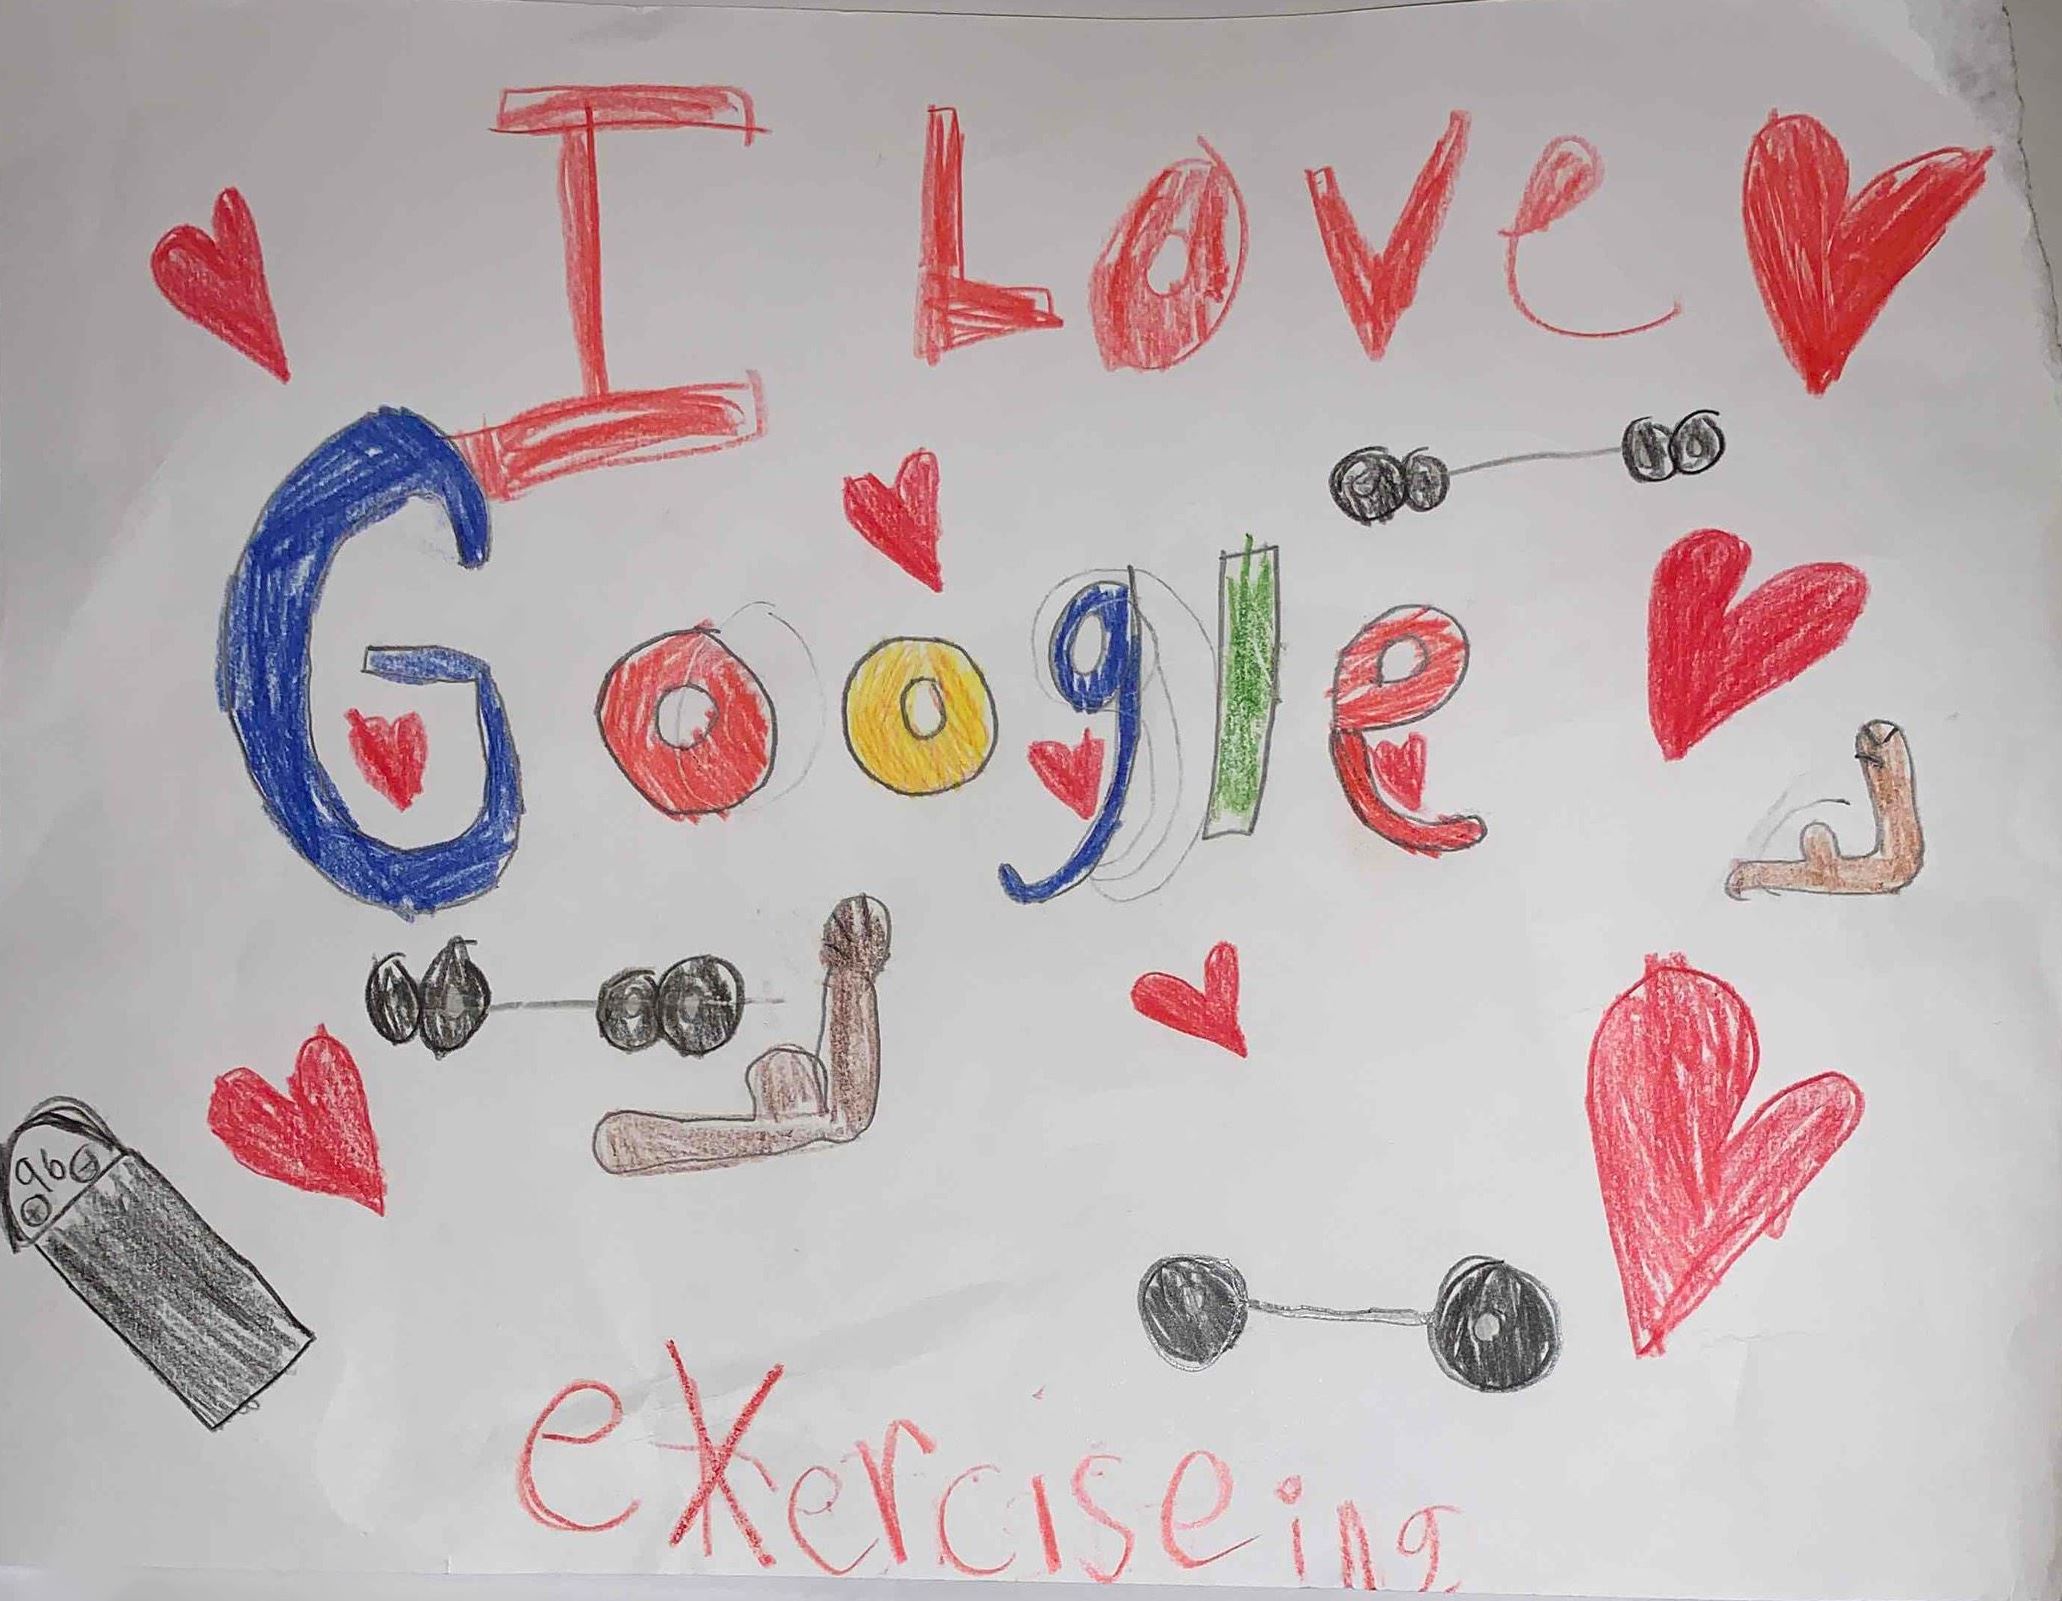 I Love
Google
96
exerciseing